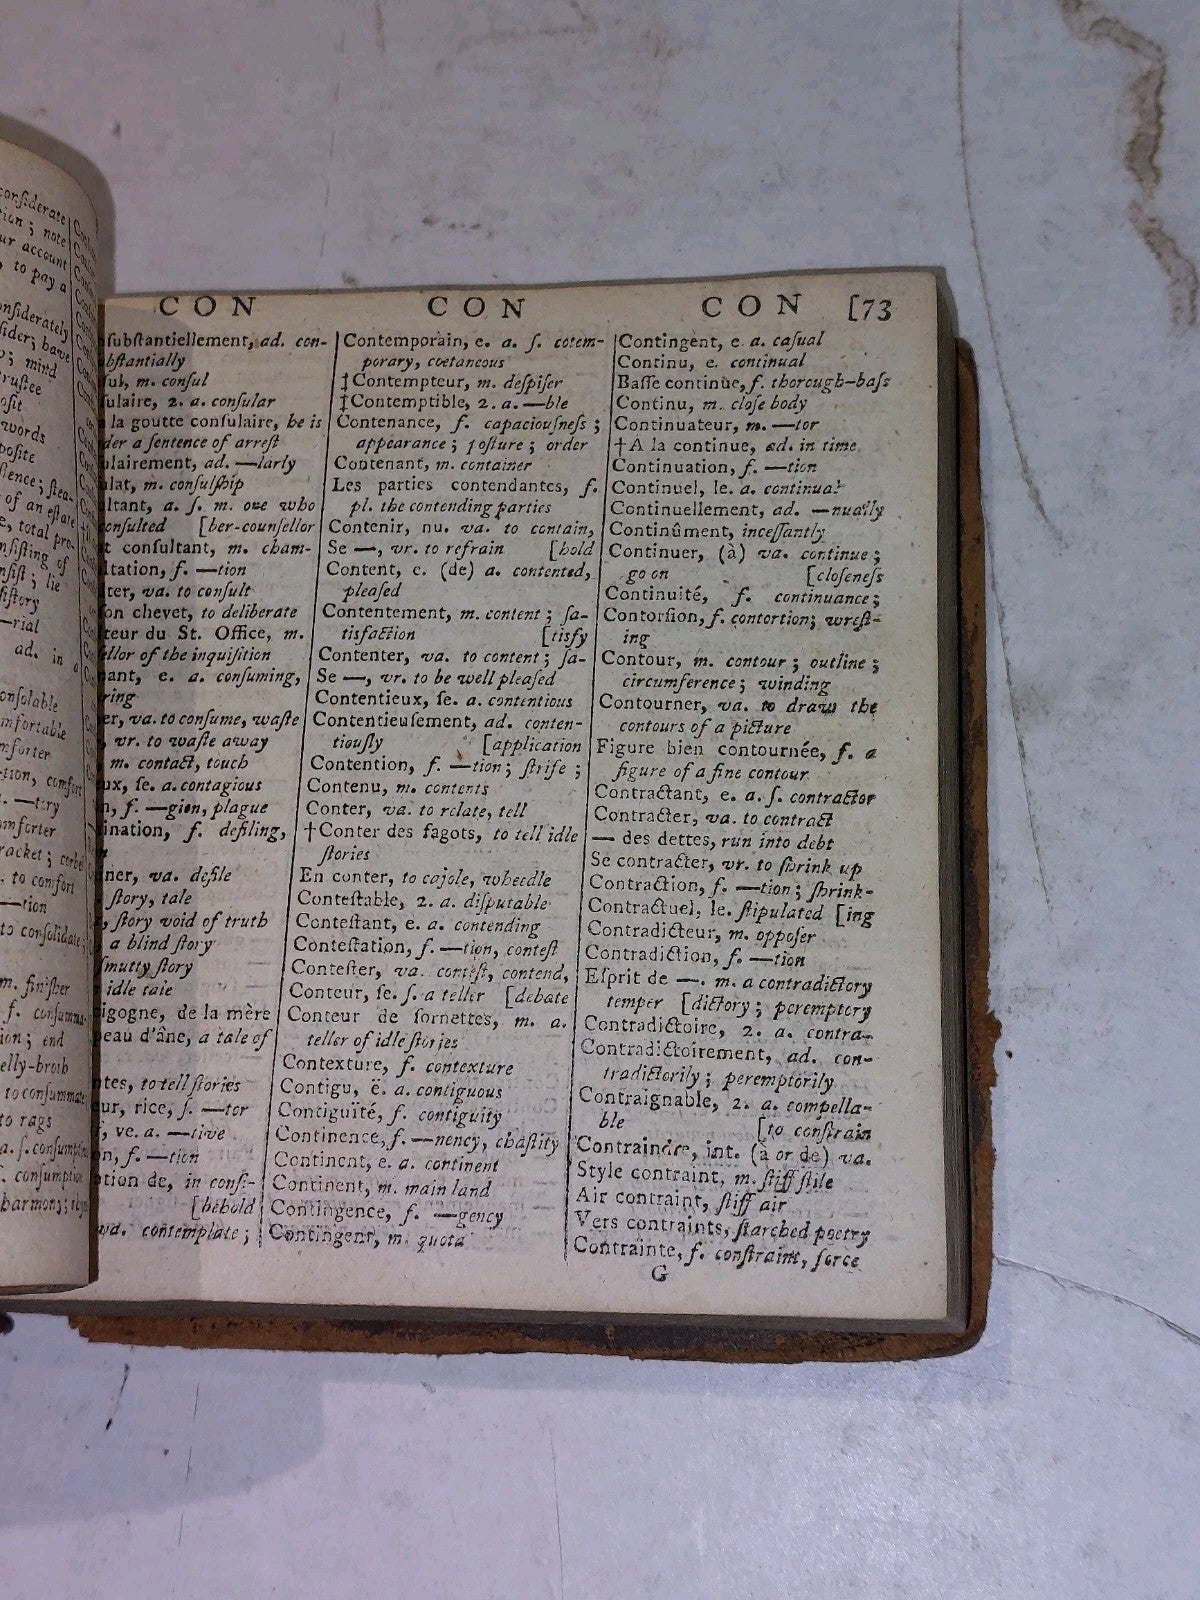 considerate
tion ; note
ur account
to pay a
onsiderately
sider; have
; mind
trustee
osit
words
posite
sience ; stea-
of an estate
e, total pro-
nsisting of
nsist ; lie
sistory
—rial
ad. in a
onsolable
mfortable
mforter
tion, comfort
—tory
omforter
racket ; corbel
to comfort
—tion
to consolidate ;
m. finisher
f. consumma-
ion ; end
elly-broth
to consummate
to rags
a. ſ. consumptive
f. consumption
harmony ;
CON CON CON [73
nſubſtantiellement, ad. con-
bſtantially
ſul, m. conſul
ſulaire, 2. a. conſular
a la goutte conſulaire, he is
der a ſentence of arreſt
ulairement, ad. —larly
ulat, m. conſulſhip
ultant, a. ſ. m. one who
conſulted [ber-counſellor
t conſultant, m. cham-
ltation, f. —tion
lter, va. to conſult
ſon chevet, to deliberate
lteur du St. Office, m.
ellor of the inquiſition
nant, e. a. conſuming,
ring
er, va. to conſume, waſte
, vr. to waſte away
m. contact, touch
ux, ſe. a. contagious
n, f. —gion, plague
ination, f. defiling,
n
iner, va. defile
ſtory, tale
, ſtory void of truth
a blind ſtory
ſmutty ſtory
idle tale
igogne, de la mère
peau d'âne, a tale of
ntes, to tell ſtories
ur, rice, ſ. —tor
f, ve. a. —tive
on, f. —tion
ation de, in conſi-
[behold
va. contemplate ;
Contemporain, e. a. ſ. cotem-
porary, coetaneous
‡Contempteur, m. deſpiſer
‡Contemptible, 2. a. —ble
Contenance, f. capaciouſneſs ;
appearance ; poſture ; order
Contenant, m. container
Les parties contendantes, f.
pl. the contending parties
Contenir, nu. va. to contain,
Se —, vr. to refrain [hold
Content, e. (de) a. contented,
pleaſed
Contentement, m. content ; ſa-
tisfaction [tisfy
Contenter, va. to content ; ſa-
Se —, vr. to be well pleaſed
Contentieux, ſe. a. contentious
Contentieuſement, ad. conten-
tiouſly [application
Contention, f. —tion ; ſtrife ;
Contenu, m. contents
Conter, va. to relate, tell
†Conter des fagots, to tell idle
ſtories
En conter, to cajole, wheedle
Conteſtable, 2. a. diſputable
Conteſtant, e. a. contending
Conteſtation, f. —tion, conteſt
Conteſter, va. conteſt, contend,
Conteur, ſe. ſ. a teller [debate
Conteur de ſornettes, m. a.
teller of idle ſtories
Contexture, f. contexture
Contigu, ë. a. contiguous
Contiguïté, f. contiguity
Continence, f. —nency, chaſtity
Continent, e. a. continent
Continent, m. main land
Contingence, f. —gency
Contingent, m. quota
Contingent, e. a. caſual
Continu, e. continual
Baſſe continue, f. thorough-baſs
Continu, m. cloſe body
Continuateur, m. —tor
†A la continue, ad. in time
Continuation, f. —tion
Continuel, le. a. continual
Continuellement, ad. —nually
Continûment, inceſſantly
Continuer, (à) va. continue ;
go on [cloſeneſs
Continuité, f. continuance ;
Contorſion, f. contortion ; wreſt-
ing
Contour, m. contour ; outline ;
circumference ; winding
Contourner, va. to draw the
contours of a picture
Figure bien contournée, f. a
figure of a fine contour
Contractant, e. a. ſ. contractor
Contracter, va. to contract
— des dettes, run into debt
Se contracter, vr. to ſhrink up
Contraction, f. —tion ; ſhrink-
Contractuel, le. ſtipulated [ing
Contradicteur, m. oppoſer
Contradiction, f. —tion
Eſprit de —. m. a contradictory
temper [dictory ; peremptory
Contradictoire, 2. a. contra-
Contradictoirement, ad. con-
tradictorily ; peremptorily
Contraignable, 2. a. compella-
ble [to conſtrain
Contraindre, int. (à or de) va.
Style contraint, m. ſtiff ſtile
Air contraint, ſtiff air
Vers contraints, ſtarched poetry
Contrainte, f. conſtraint, force
G